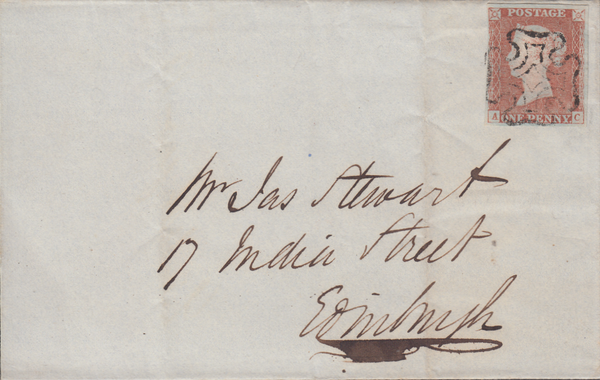 POSTAGE
A ONE PENNY C
Mr Jas Stewart
17 India Street
Edinburgh